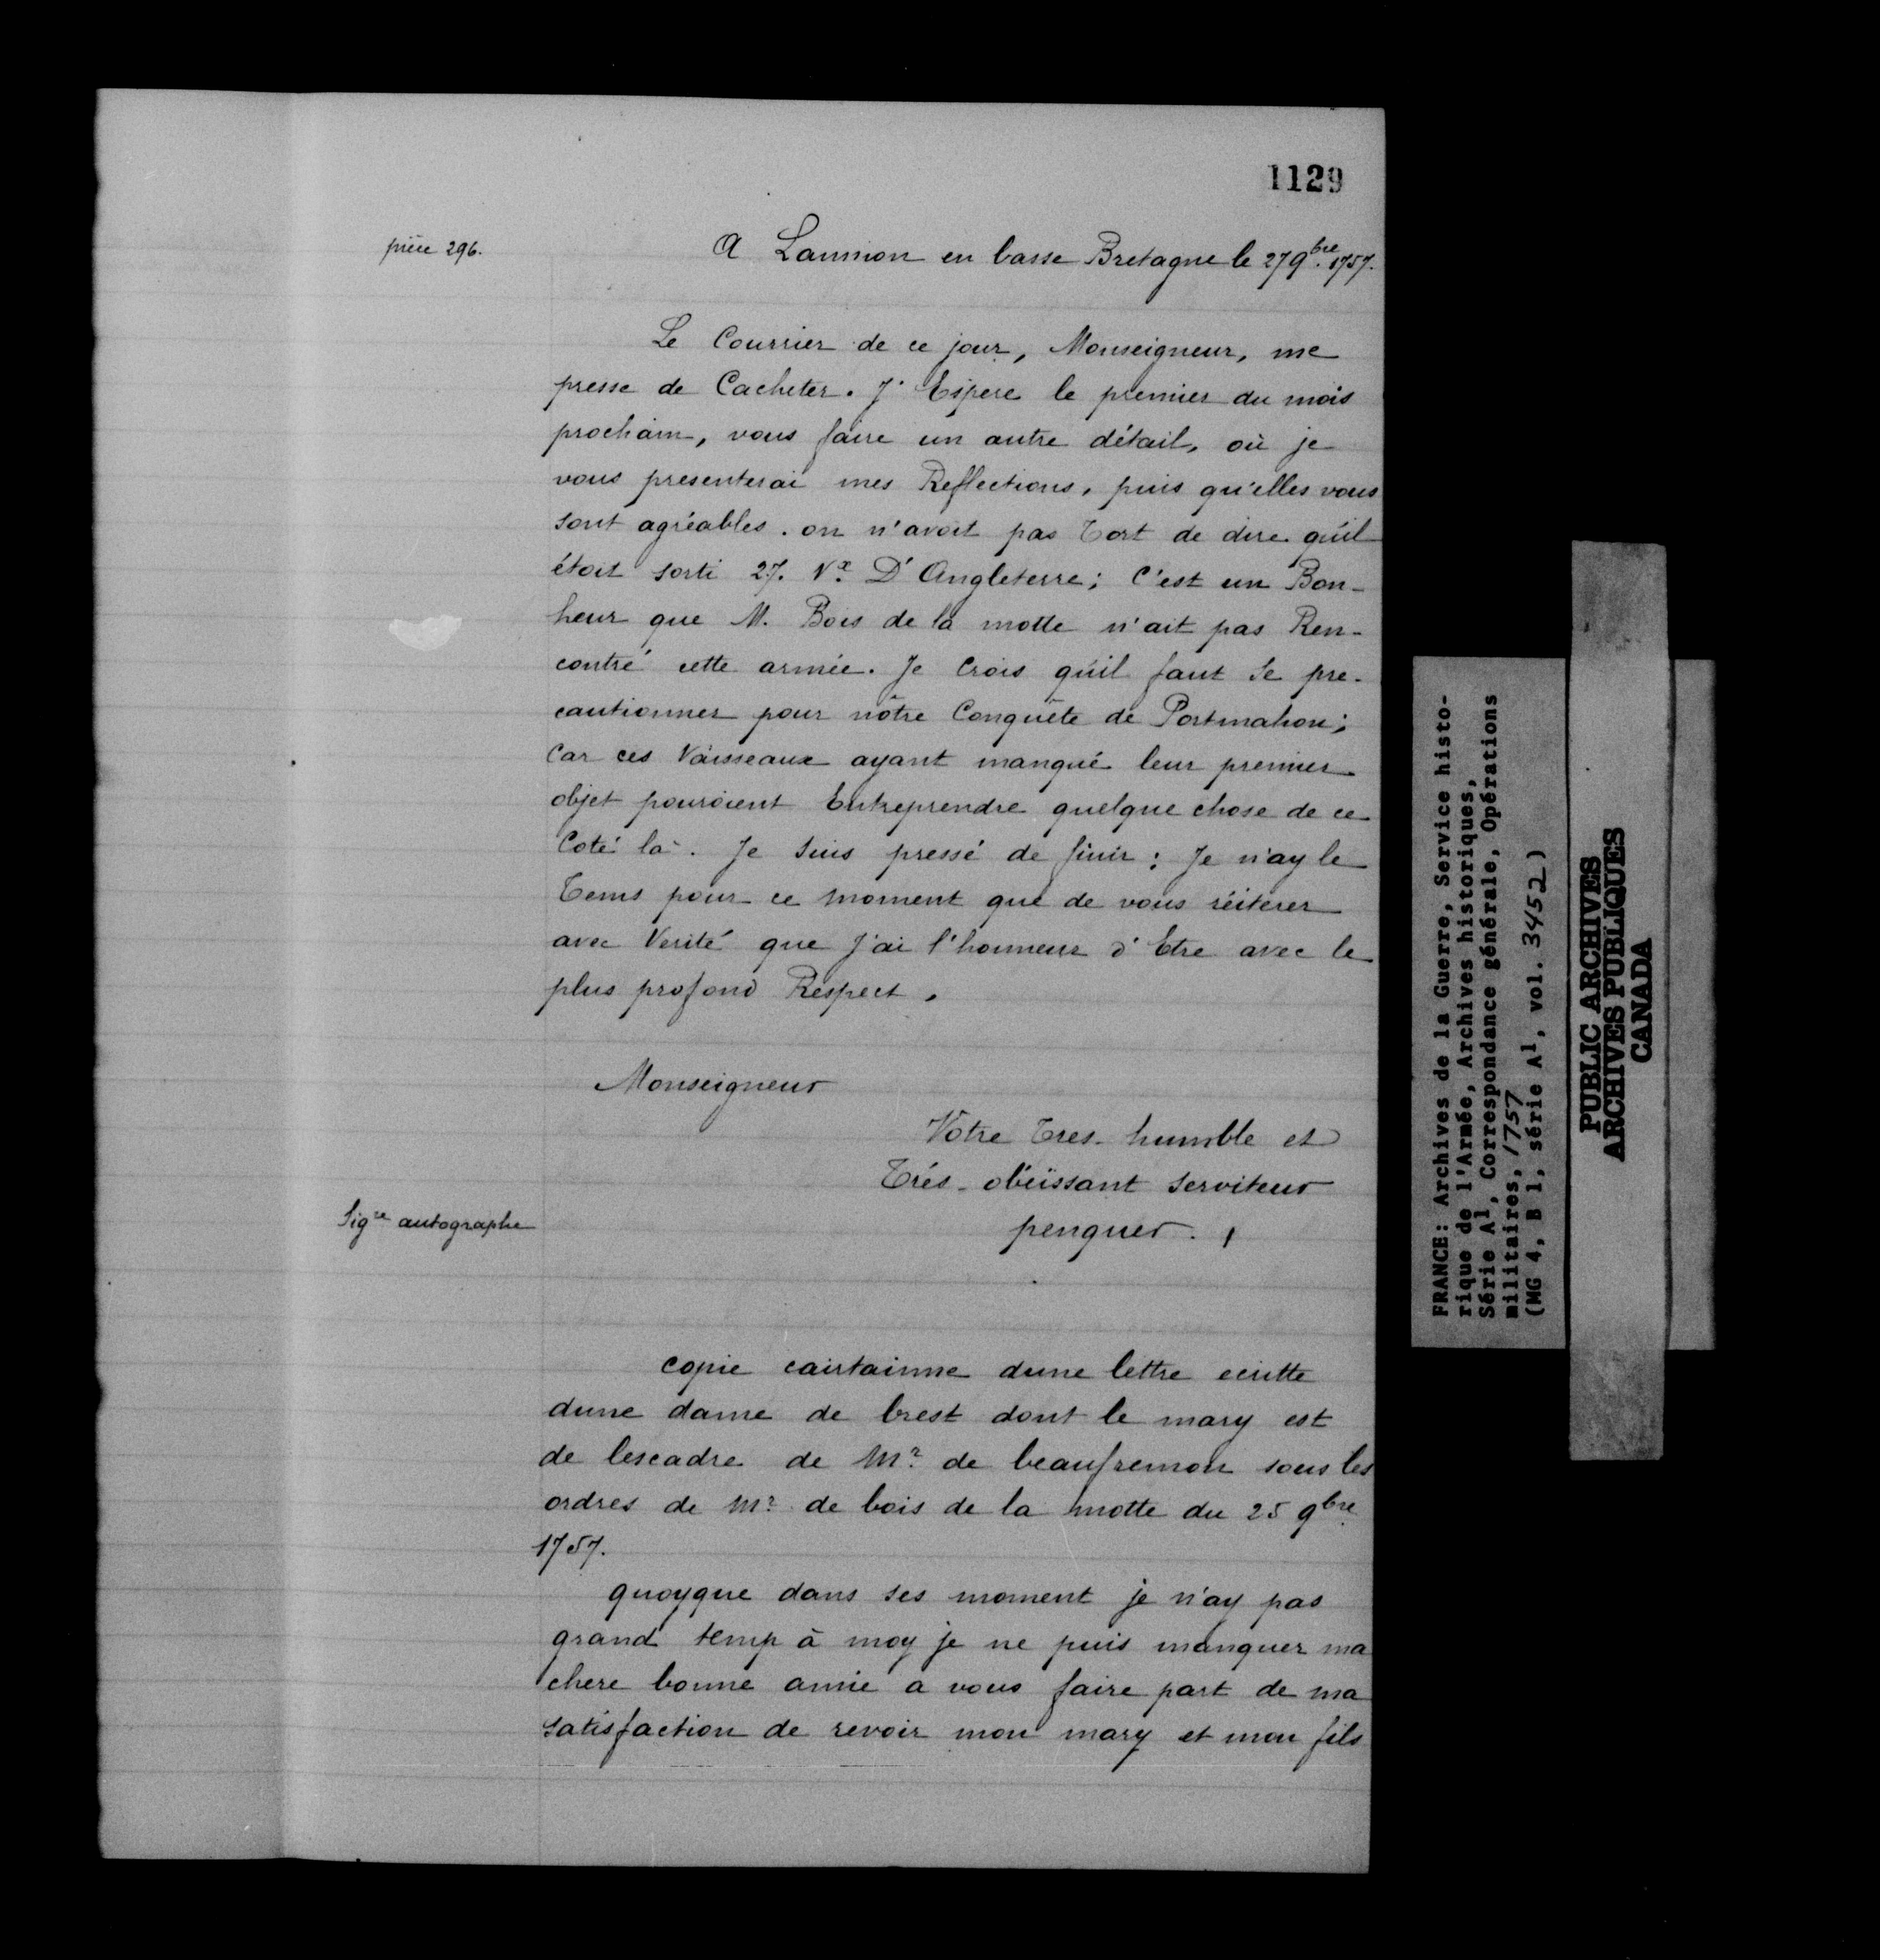 1129
pièce 296.
A Lannion en basse Bretagne le 27 9bre. 1757.
Le Courrier de ce jour, Monseigneur, me
presse de Cacheter. J'Espere le premier du mois
prochain, vous faire un autre détail, où je
vous presenterai mes Reflections, puis qu'elles vous
sont agréables. on n'avoit pas Tort de dire qu'il
étoit sorti 27. Vx D'Angleterre; C'est un Bon-
heur que M. Bois de la motte n'ait pas Ren-
contré cette armée. Je Crois qu'il faut se pre-
cautionner pour nôtre Conquête de Portmahon;
Car ces Vaisseaux ayant manqué leur premier
objet pouroient Entreprendre quelque chose de ce
Coté là. Je suis pressé de finir: Je n'ay le
Tems pour ce moment que de vous réiterer
avec Verité que J'ai l'honneur d'Etre avec le
plus profond Respect,
Monseigneur
Votre Tres-humble et
Trés-obéissant serviteur
Sigre autographe
penguer.
copie cairtainne dune lettre ecritte
dune dame de brest dont le mary est
de lescadre de Mr. de beaufremon sous les
ordres de Mr. de bois de la motte du 25 9bre
1757.
quoyque dans ses moment je n'ay pas
grand temp à moy je ne puis manquer ma
chere bonne amie a vous faire part de ma
satisfaction de revoir mon mary et mon fils
FRANCE: Archives de la Guerre, Service histo-
rique de l'Armée, Archives historiques,
Série A1, Correspondance générale, Opérations
militaires, 1757
(MG 4, B 1, série A1, vol. 3452)
PUBLIC ARCHIVES
ARCHIVES PUBLIQUES
CANADA